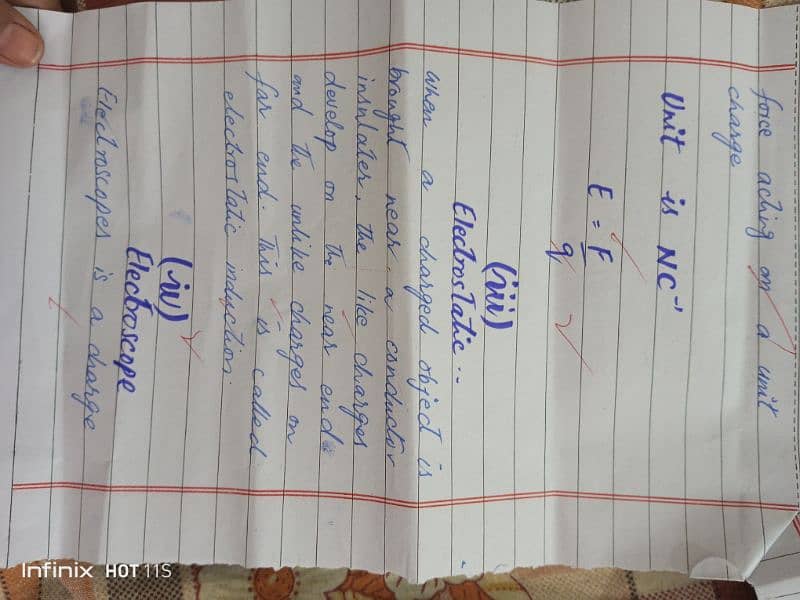 force acting on a unit
charge
Unit is NC⁻¹
E = F
q
(iii)
Electrostatic..
when a charged object is
brought near a conductor
insulater, the like charges
develop on the near end
and the unlike charges on
far end. This is called
electrostatic induction.
(iv)
Electroscope
Electroscopes is a charge
Infinix HOT 11S